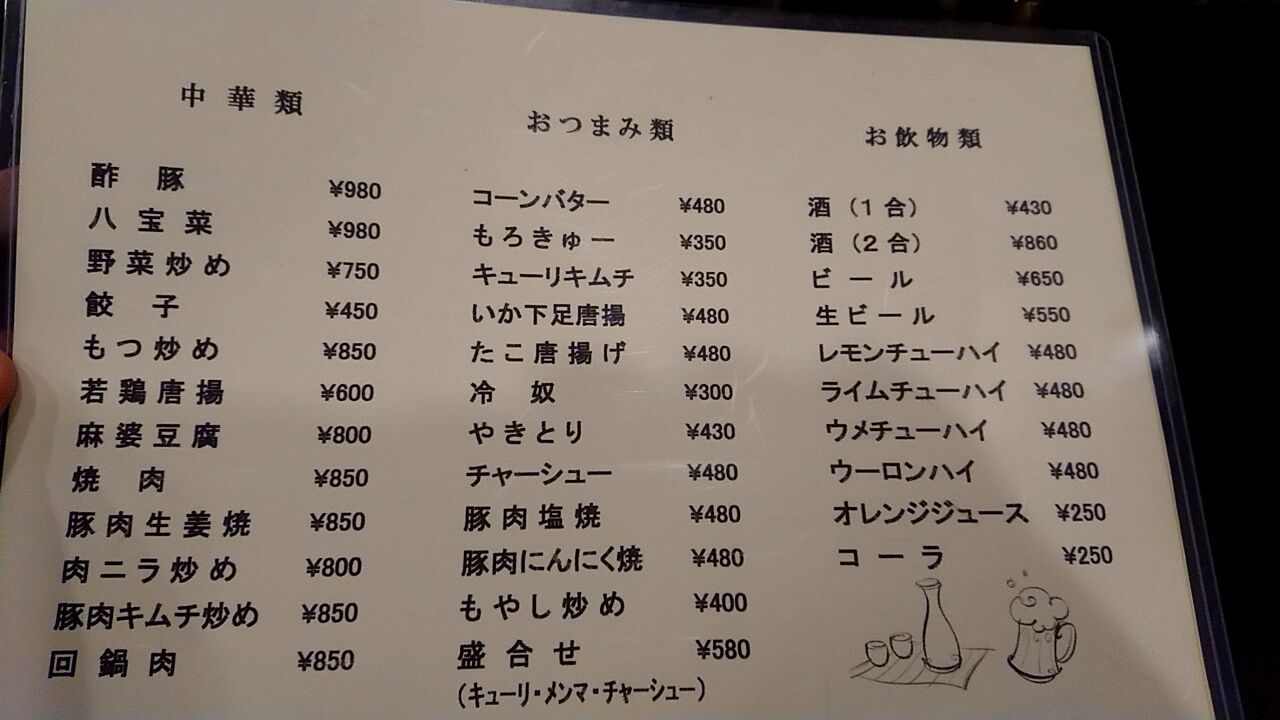 中華類
酢豚 ¥980
八宝菜 ¥980
野菜炒め ¥750
餃子 ¥450
もつ炒め ¥850
若鶏唐揚 ¥600
麻婆豆腐 ¥800
焼肉 ¥850
豚肉生姜焼 ¥850
肉ニラ炒め ¥800
豚肉キムチ炒め ¥850
回鍋肉 ¥850
おつまみ類
コーンバター ¥480
もろきゅー ¥350
キューリキムチ ¥350
いか下足唐揚 ¥480
たこ唐揚げ ¥480
冷奴 ¥300
やきとり ¥430
チャーシュー ¥480
豚肉塩焼 ¥480
豚肉にんにく焼 ¥480
もやし炒め ¥400
盛合せ ¥580
(キューリ・メンマ・チャーシュー)
お飲物類
酒(1合) ¥430
酒(2合) ¥860
ビール ¥650
生ビール ¥550
レモンチューハイ ¥480
ライムチューハイ ¥480
ウメチューハイ ¥480
ウーロンハイ ¥480
オレンジジュース ¥250
コーラ ¥250